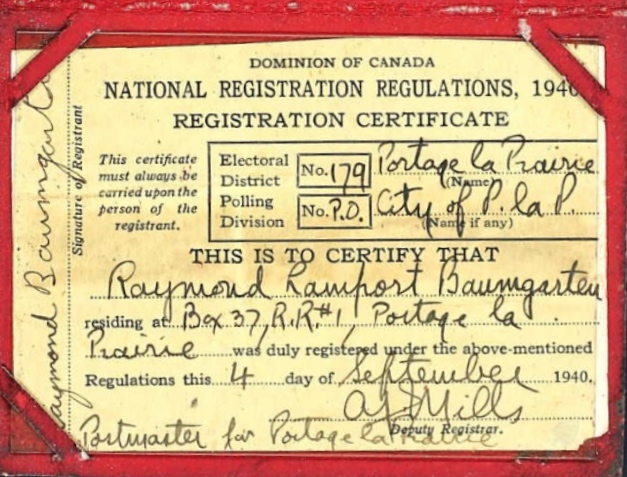 DOMINION OF CANADA
NATIONAL REGISTRATION REGULATIONS, 1940
REGISTRATION CERTIFICATE
This certificate
must always be
carried upon the
person of the
registrant.
Electoral
District
No. 179
Portage la Prairie
(Name)
Polling
Division
No. P.O.
City of P. la P.
(Name if any)
THIS IS TO CERTIFY THAT
Raymond Lamport Baumgarten
residing at Box 37, R.R.#1, Portage la
Prairie was duly registered under the above-mentioned
Regulations this 4 day of September 1940.
Mills
Deputy Registrar.
Postmaster for Portage la Prairie
Raymond Baumgarten
Signature of Registrant